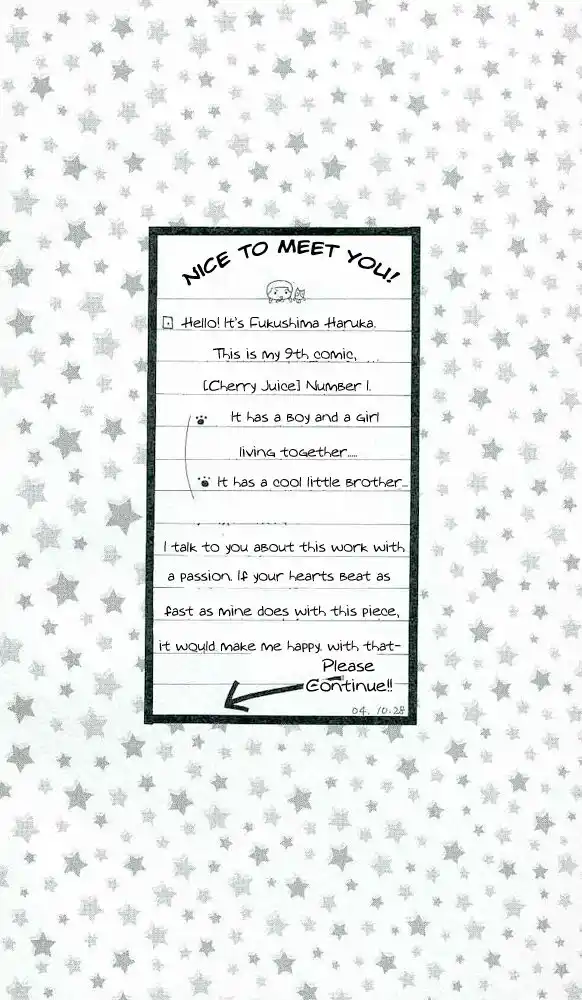 NICE TO MEET YOU!
Hello! It's Fukushima Haruka.
This is my 9th comic,
[Cherry Juice] Number 1.
It has a Boy and a Girl
living together....
It has a cool little Brother...
I talk to you about this work with
a passion. If your hearts Beat as
fast as mine does with this piece,
it would make me happy. with that-
Please
Continue!!
04. 10. 28